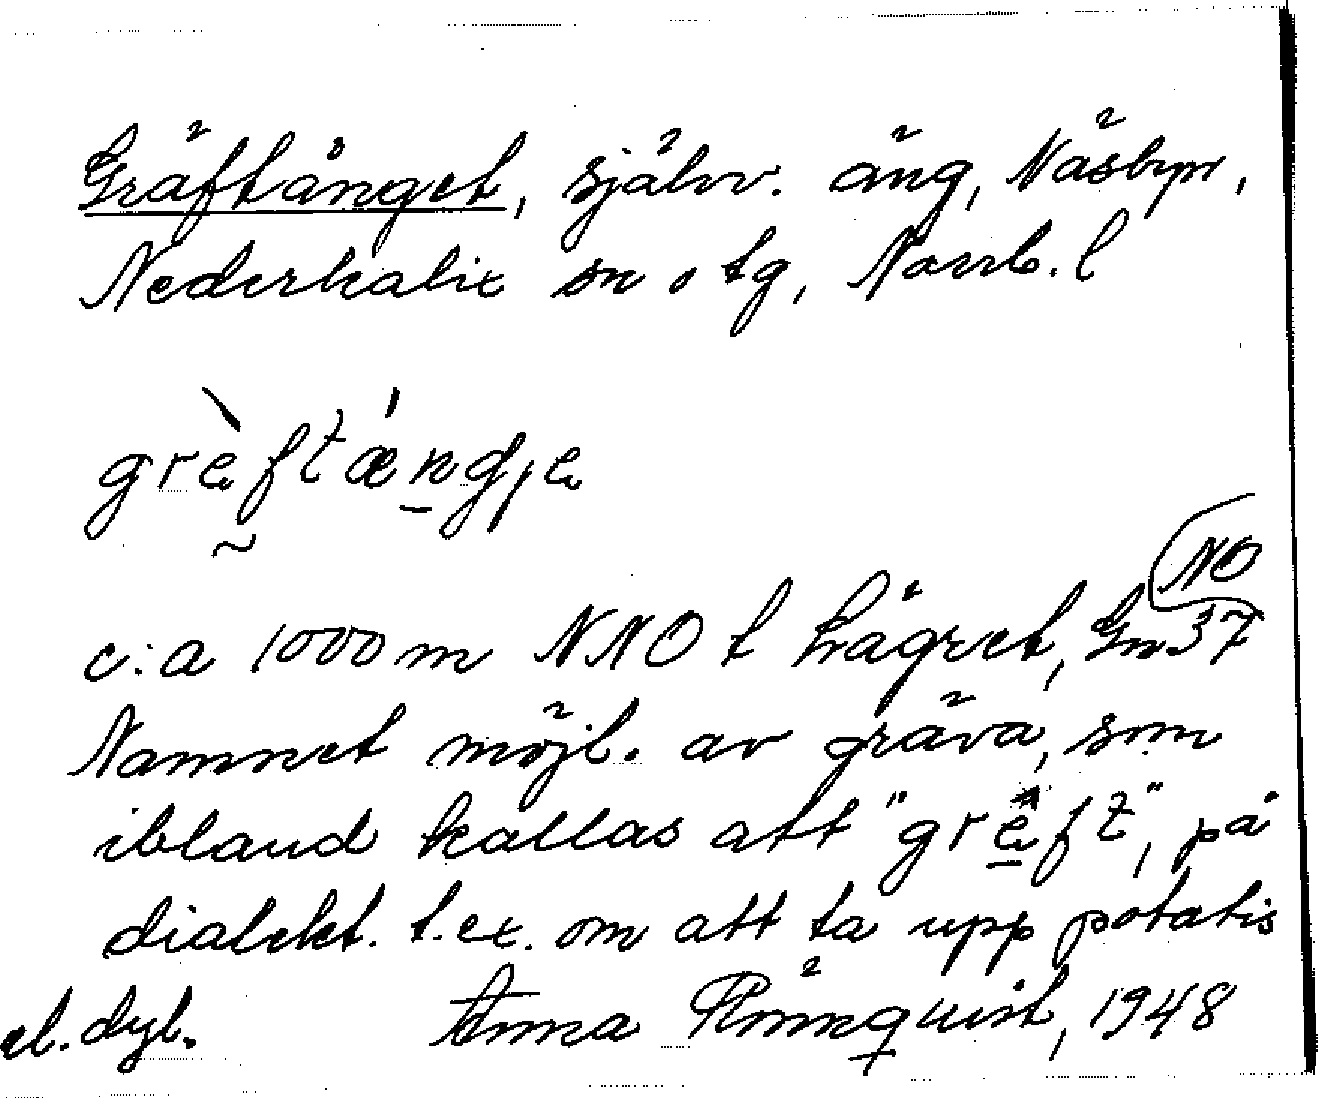 Gräftänget, självv. äng, Näsbyn,
Nederkalix sn o tg, Norrb. l
grèftæ´ngje
NO
c:a 1000 m NNO t Lägret, Gm 37
Namnet möjl. av gräva, som
ibland kallas att "greft", på
dialekt. t.ex. om att ta upp potatis
el. dyl. Anna Rönnquist, 1948